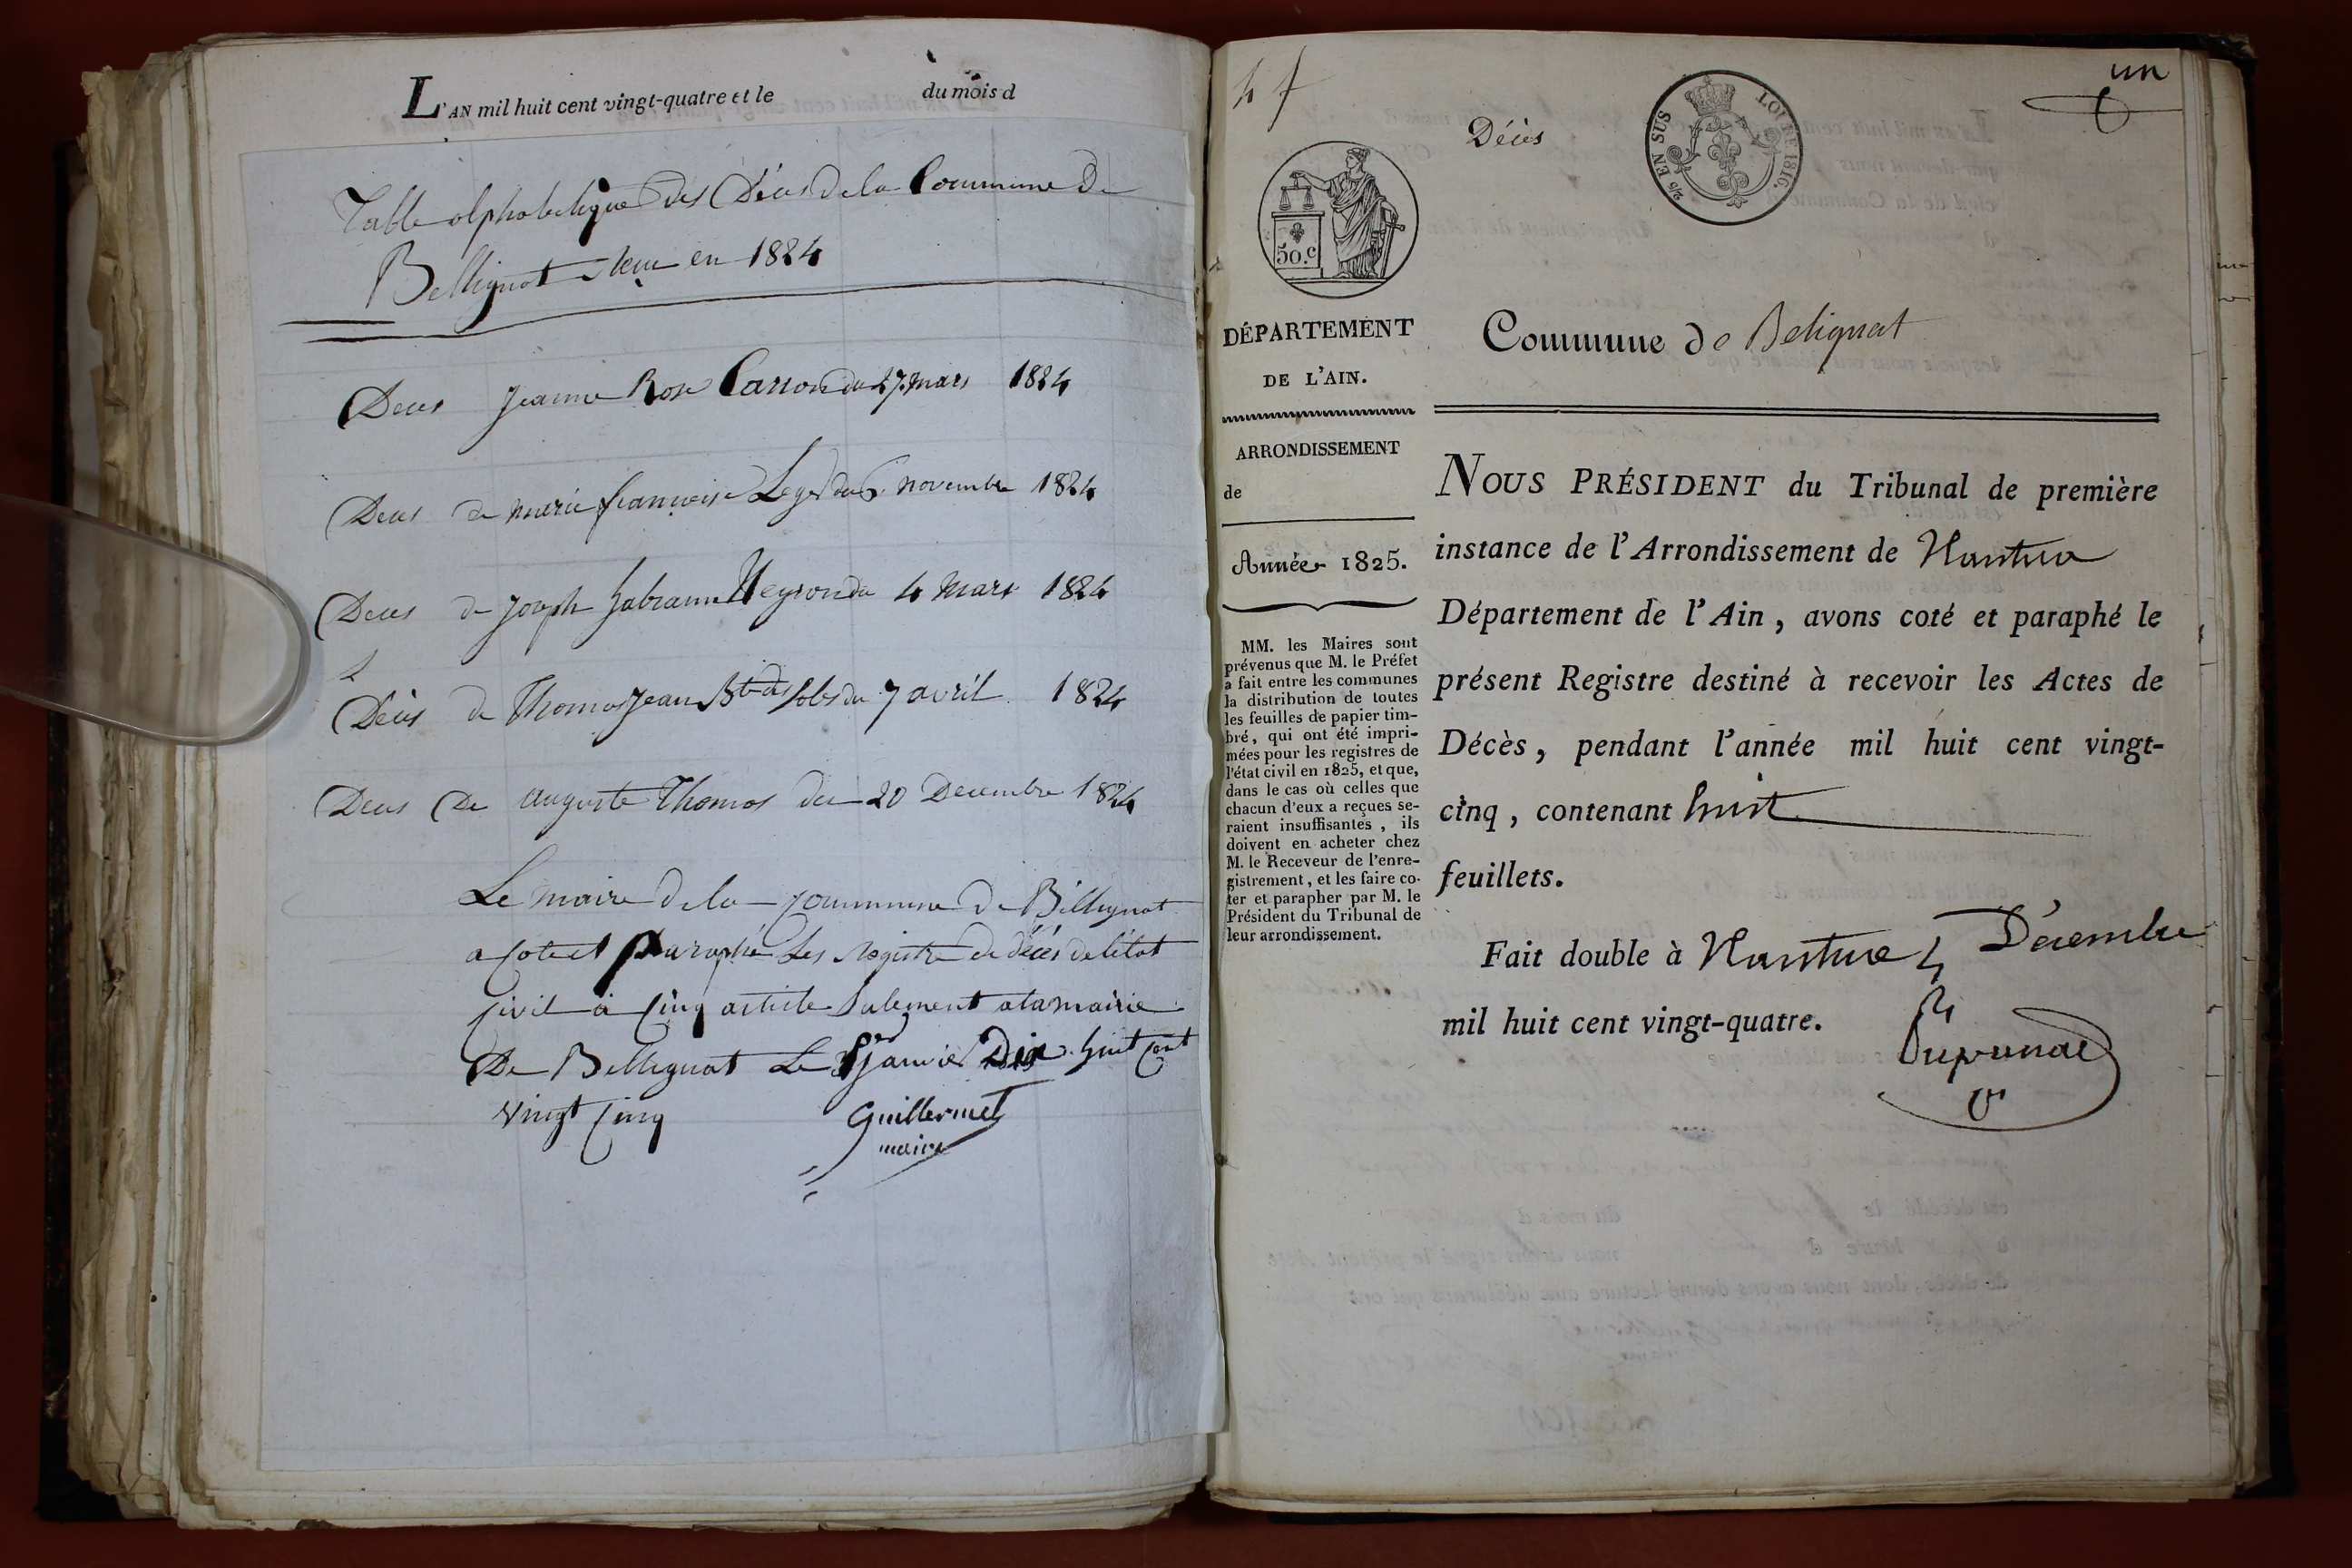 L'AN mil huit cent vingt-quatre et le du mois d
Table alphabetique des Décès de la Commune De
Bellignat en 1824
Deces Jeanne Rose Carron du 27 mars 1824
Deces de marie françoise Leger du 6 novembre 1824
Deces de Joseph Neyron du 4 Mars 1824
Décès de Thomas Jean Bte du 7 avril 1824
Deces De auguste Thomas du 20 Decembre 1824
Le maire de la commune De Bellignat
a coté et paraphé Les registre de décès de létat
civil a cinq article sulement a la mairie
De Bellegnat Le janvier Dix huit cent
vingt cinq Guillermet
maire
un
Décès
2/5 EN SUS
LOI DE 1816.
50.c
DÉPARTEMENT
DE L'AIN.
Commune de Belignat
ARRONDISSEMENT
de
Année 1825.
MM. les Maires sont
prévenus que M. le Préfet
a fait entre les communes
la distribution de toutes
les feuilles de papier tim-
bré, qui ont été impri-
mées pour les registres de
l'état civil en 1825, et que,
dans le cas où celles que
chacun d'eux a reçues se-
raient insuffisantes, ils
doivent en acheter chez
M. le Receveur de l'enre-
gistrement, et les faire co-
ter et parapher par M. le
Président du Tribunal de
leur arrondissement.
NOUS PRÉSIDENT du Tribunal de première
instance de l'Arrondissement de Nantua
Département de l'Ain, avons coté et paraphé le
présent Registre destiné à recevoir les Actes de
Décès, pendant l'année mil huit cent vingt-
cinq, contenant huit
feuillets.
Fait double à Nantua 4 Décembre
mil huit cent vingt-quatre.